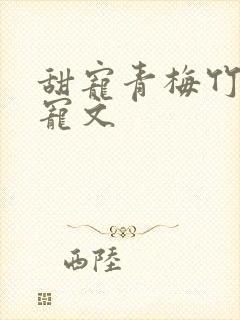 甜寵青梅竹
寵文
西陸